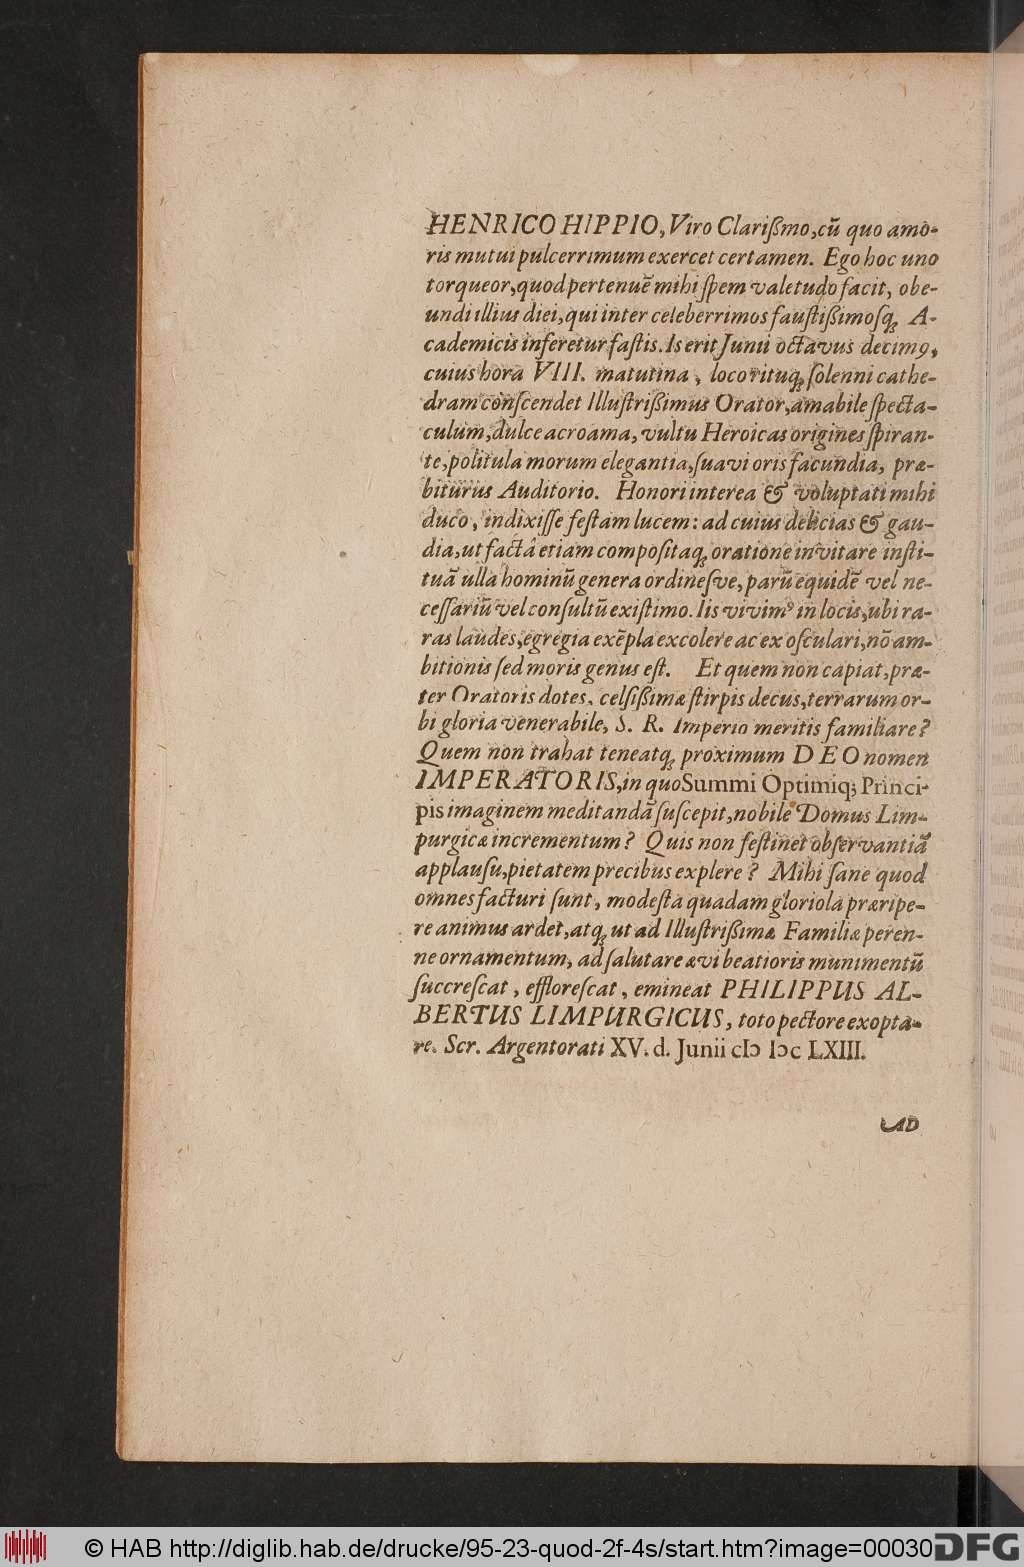 HENRICO HIPPIO, Viro Clarißmo, cũ quo amo-
ris mutui pulcerrimum exercet certamen. Ego hoc uno
torqueor, quod pertenuẽ mihi ſpem valetudo facit, obe-
undi illius diei, qui inter celeberrimos fauſtißimoſq; A-
cademicis inferetur faſtis. Is erit Junii octavus decimꝰ,
cuius hora VIII. matutina, loco rituq; ſolenni cathe-
dram conſcendet Illuſtrißimus Orator, amabile ſpecta-
culum, dulce acroama, vultu Heroicas origines ſpiran-
te, politula morum elegantia, ſuavi oris facundia, præ-
biturus Auditorio. Honori interea & voluptati mihi
duco, indixiſſe feſtam lucem: ad cuius delicias & gau-
dia, ut factâ etiam compoſitaq; oratione invitare inſti-
tuã ulla hominũ genera ordineſve, parũ equidẽ vel ne-
ceſſariũ vel conſultũ exiſtimo. Iis vivimꝰ in locis, ubi ra-
ras laudes, egregia exẽpla excolere ac exoſculari, nõ am-
bitionis ſed moris genus eſt. Et quem non capiat, præ-
ter Oratoris dotes, celſißimæ ſtirpis decus, terrarum or-
bi gloria venerabile, S. R. Imperio meritis familiare?
Quem non trahat teneatq; proximum DEO nomen
IMPERATORIS, in quo Summi Optimiq; Princi-
pis imaginem meditandã ſuſcepit, nobile Domus Lim-
purgicæ incrementum? Quis non feſtinet obſervantiã
applauſu, pietatem precibus explere? Mihi ſane quod
omnes facturi ſunt, modeſta quadam gloriola præripe-
re animus ardet, atq; ut ad Illuſtrißimæ Familiæ peren-
ne ornamentum, ad ſalutare ævi beatioris munimentũ
ſuccreſcat, effloreſcat, emineat PHILIPPUS AL-
BERTUS LIMPURGICUS, toto pectore exopta-
re. Scr. Argentorati XV. d. Junii cIↄ Iↄc LXIII.
AD
© HAB http://diglib.hab.de/drucke/95-23-quod-2f-4s/start.htm?image=00030
DFG